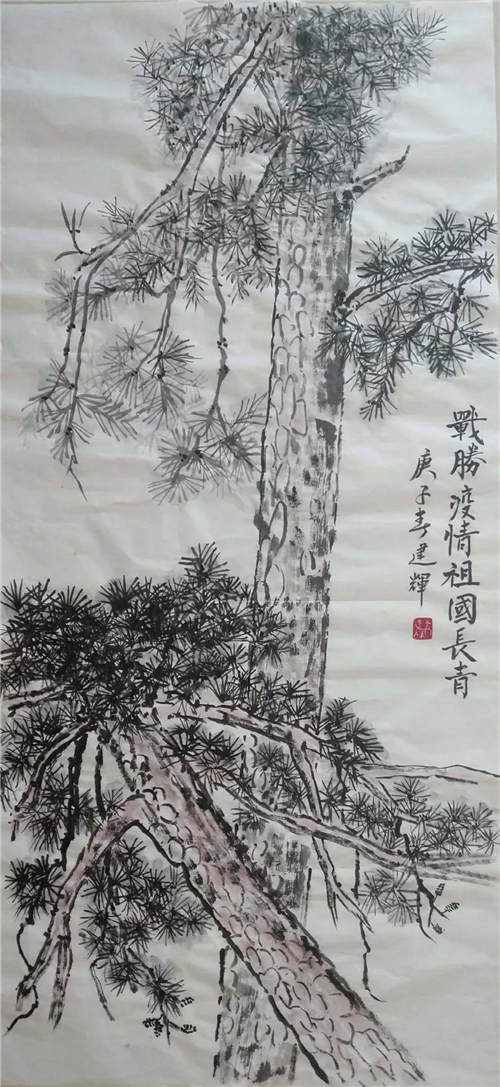 戰勝疫情祖國長青
庚子春建輝